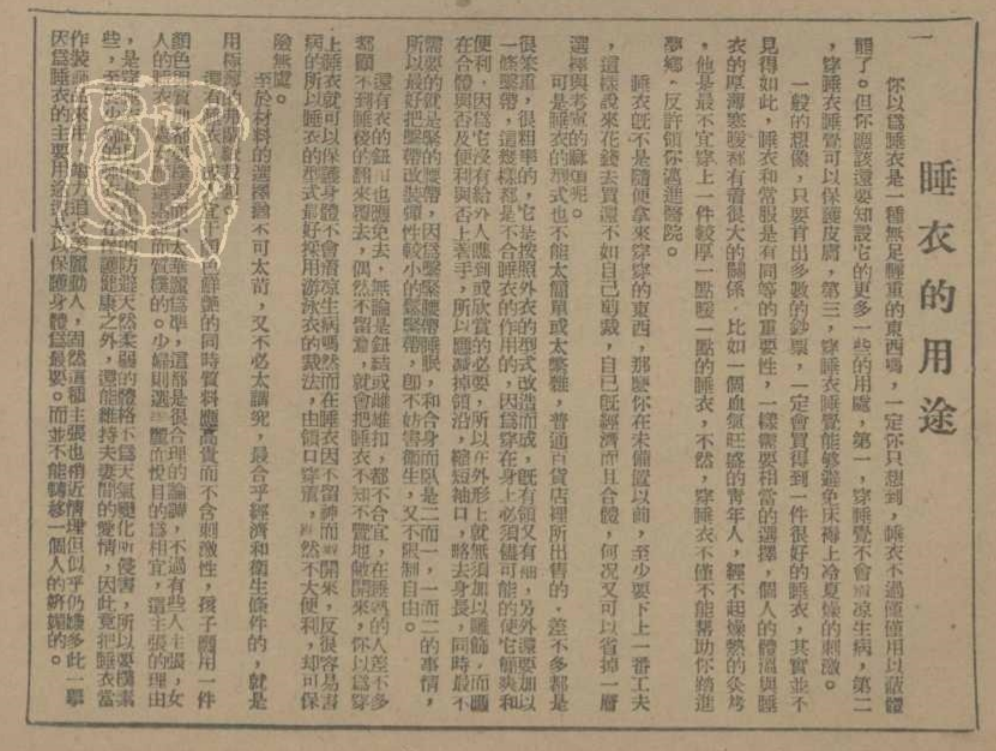 睡衣的用途
你以爲睡衣是一種無足輕重的東西嗎，一定你只想到，睡衣不過僅僅用以蔽體
罷了。但你應該還要知設它的更多一些的用處，第一，穿睡覺不會凉生病，第二
，穿睡衣睡覺可以保護皮膚，第三，穿睡衣睡覺能够避免床褥上冷夏燥的刺激。
一般的想像，只要肯出多數的鈔票，一定會買得到一件很好的睡衣，其實並不
見得如此，睡衣和常服是有同等的重要性，一樣需要相當的選擇，個人的體溫與睡
衣的厚薄寒暖都有着很大的關係，比如一個血氣旺盛的靑年人，經不起燥熱的灸烤
，他是最不宜穿上一件較厚一點暖一點的睡衣，不然，穿睡衣不僅不能幫助你踏進
夢鄉，反許領你邁進醫院。
睡衣旣不是隨便拿來穿穿的東西，那麼你在未備置以前，至少要下上一番工夫
，這樣說來花錢去買還不如自己剪裁，自己旣經濟而且合體，何况又可以省掉一層
選擇與考慮的麻煩呢。
可是睡衣的型式也不能太簡單或太繁雜，普通百貨店裡所出售的，差不多都是
很笨重，很粗率的，它是按照外衣的型式改造而成，旣有領又有袖，另外還要加以
一條繫帶，這幾樣都是不合睡衣的作用的，因爲穿在身上必須儘可能的使它簡爽和
便利，因爲它沒有給外人應到或欣賞的必要，所以在外形上就無須加以雕飾，而應
在合體與否及便利與否上著手，所以應減掉領沿，縮短袖口，略去身長，同時最不
需要的就是緊的腰帶，因爲繫緊腰帶睡眠，和合身而臥是二而一，一而二的事情，
所以最好把繫帶改裝彈性較小的鬆緊帶，卽不妨害衞生，又不限制自由。
還有睡衣的鈕扣也應免去，無論是鈕結或雌雄扣，都不合宜，在睡熟的人差不多
都顧不到睡後的翻來覆去，偶然不留意，就會把睡衣不知不覺地敞開來，你以爲穿
上睡衣就可以保護身體不會着凉生病嗎然而在睡衣因不留神而開來，反很容易害
病的所以睡衣的型式最好採用游泳衣的裁法，由領口穿着，然不大便利，却可保
險無處。
至於材料的選擇，不可太苛，又不必太講究，最合乎經濟和衞生條件的，就是
用極薄的弗蘭絨裁製。
還有睡衣，宜于四色鮮艶的同時質料應高貴而不含刺激性，孩子應用一件
顏色，太華麗爲準，這都是很合理的論調，不過有些人主張，女
人的睡衣，而質樸的。少婦則選艶麗而悅目的爲相宜，這主張的理由
，是，的防避天然柔弱的體格不爲天氣變化所侵害，所以要樸素
些，至於少婦的睡衣在保護健康之外，還能維持夫妻間的愛情，因此竟把睡衣當
作裝品來用，動人，固然這種主張也稍近情理但似乎仍嫌多此一擧
因爲睡衣的主要用途還是以保護身體爲最要。而並不能轉移一個人的嬌媚的。